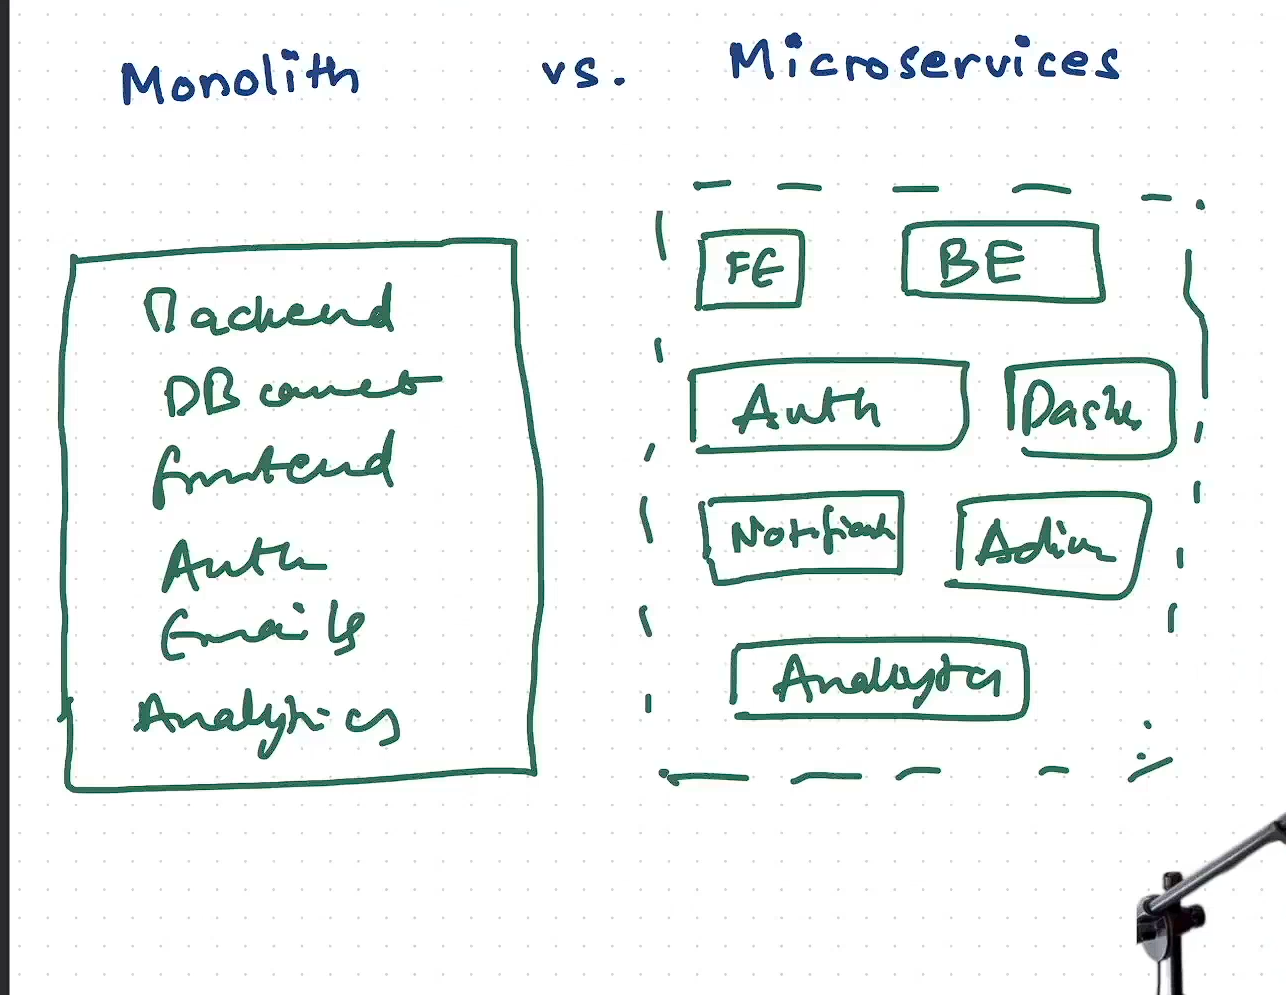 Monolith vs. Microservices
Backend
DB connect
frontend
Auth
Emails
Analytics
FE BE
Auth Dash
Notificatn Admin
Analytics